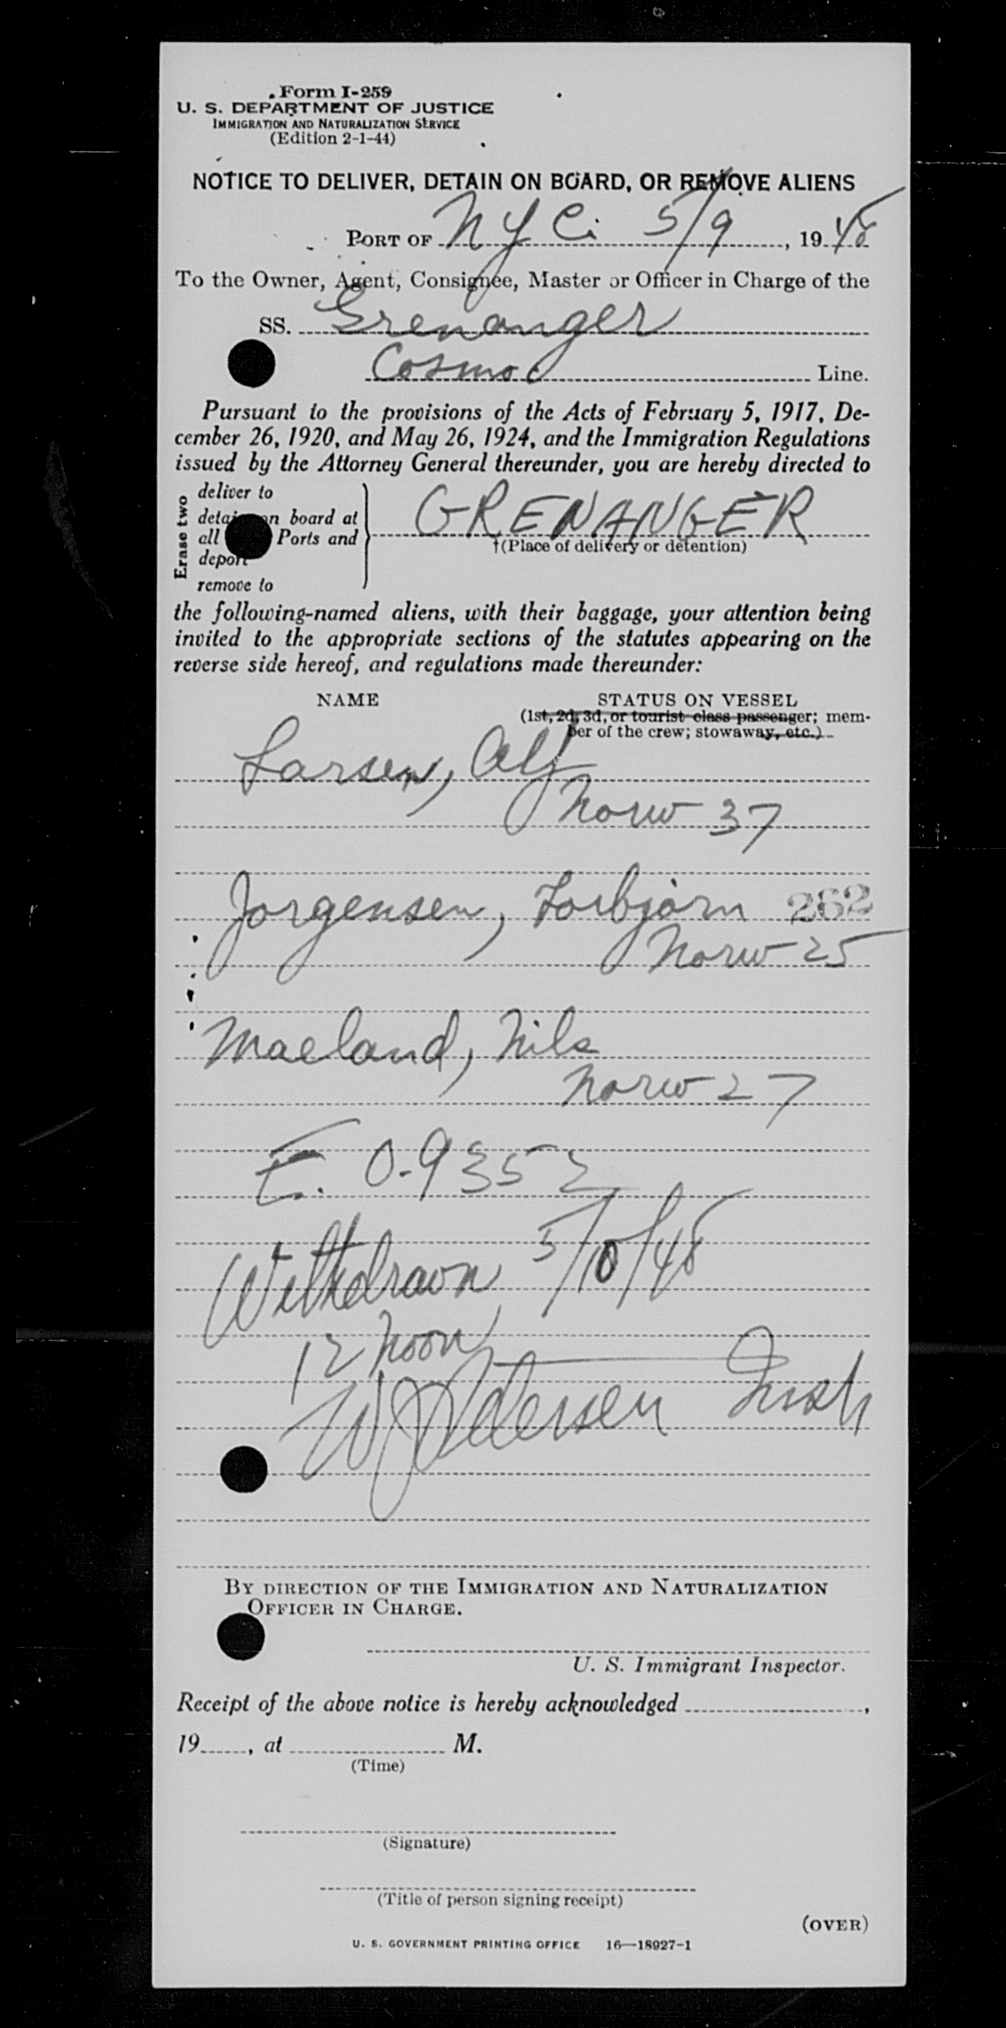 Form I-259
U. S. DEPARTMENT OF JUSTICE
IMMIGRATION AND NATURALIZATION SERVICE
(Edition 2-1-44)
NOTICE TO DELIVER, DETAIN ON BOARD, OR REMOVE ALIENS
PORT OF NY Ci 5/9, 1948
To the Owner, Agent, Consignee, Master or Officer in Charge of the
SS. Grenanger
Cosmo Line.
Pursuant to the provisions of the Acts of February 5, 1917, De-
cember 26, 1920, and May 26, 1924, and the Immigration Regulations
issued by the Attorney General thereunder, you are hereby directed to
Erase two
deliver to
detain on board at
all Ports and
deport
remove to
GRENANGER
†(Place of delivery or detention)
the following-named aliens, with their baggage, your attention being
invited to the appropriate sections of the statutes appearing on the
reverse side hereof, and regulations made thereunder:
NAME STATUS ON VESSEL
(1st, 2d, 3d, or tourist class passenger; mem-
ber of the crew; stowaway, etc.)
Larsen, Alf
Norw 37
Jorgensen, Torbjorn 262
Norw 25
Maeland, Nils
Norw 27
E. 0-9352
Withdrawn 5/10/48
12 noon
BY DIRECTION OF THE IMMIGRATION AND NATURALIZATION
OFFICER IN CHARGE.
U. S. Immigrant Inspector.
Receipt of the above notice is hereby acknowledged ,
19 , at M.
(Time)
(Signature)
(Title of person signing receipt)
(OVER)
U. S. GOVERNMENT PRINTING OFFICE 16—18927-1